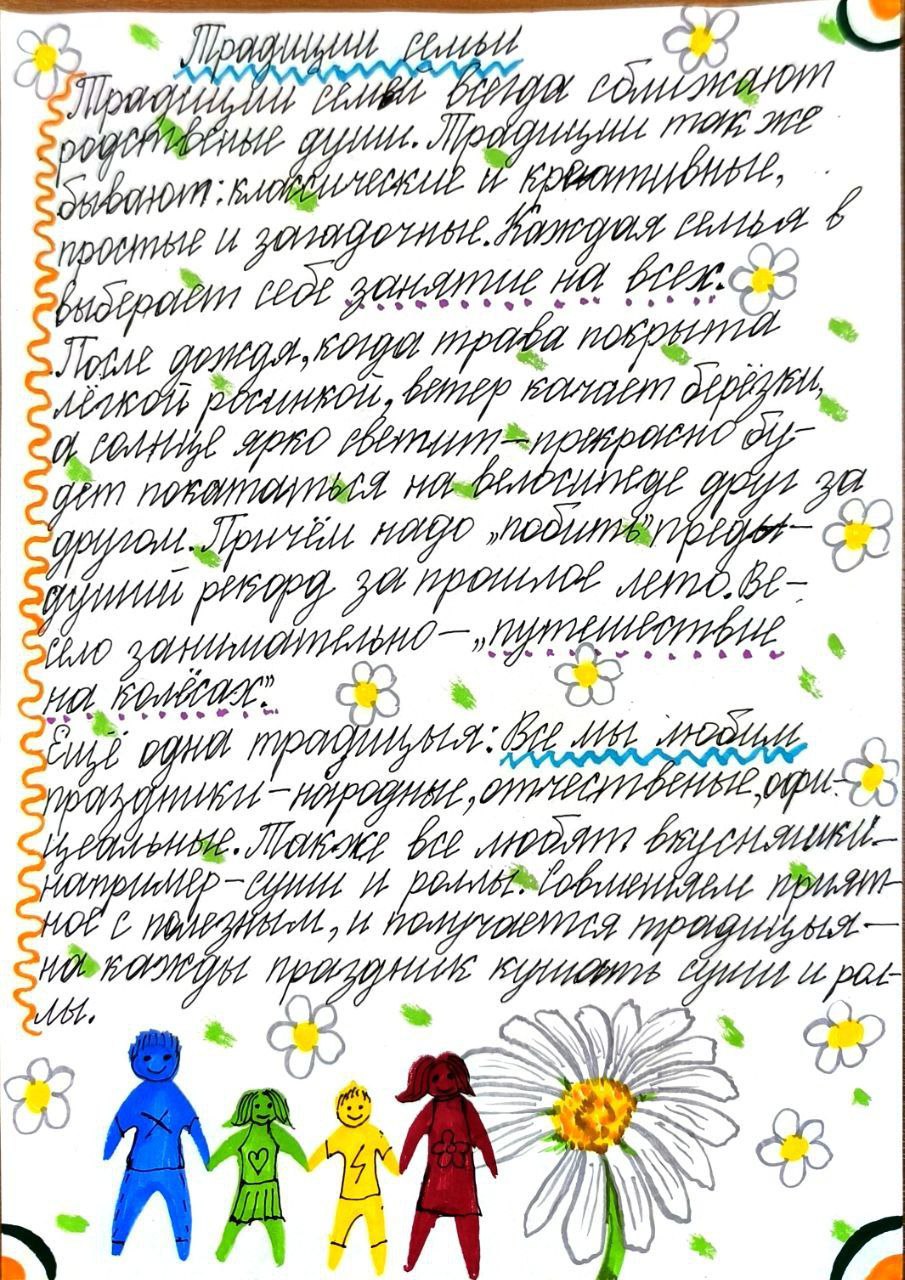 Традиции семьи
Традиции семьи всегда сближают
родственые души. Традиции так же
бывают: классические и креативные,
простые и загадочные. Каждая семья в
выберает себе занятие на всех.
После дождя, когда трава покрыта
лёгкой росинкой, ветер качает берёзки,
а солнце ярко светит – прекрасно бу-
дет покататься на велосипеде друг за
другом. Причём надо „побить” преды-
дущий рекорд за прошлое лето. Ве-
село занимательно – „путешествие
на колёсах”.
Ещё одна традицыя: Все мы любим
праздники – народные, отчественые, офи-
цеальные. Также все любят вкусняшки –
например – суши и роллы. Совмещяем прият-
ное с полезным, и получается традицыя –
на кажды праздник кушать суши и рол-
лы.